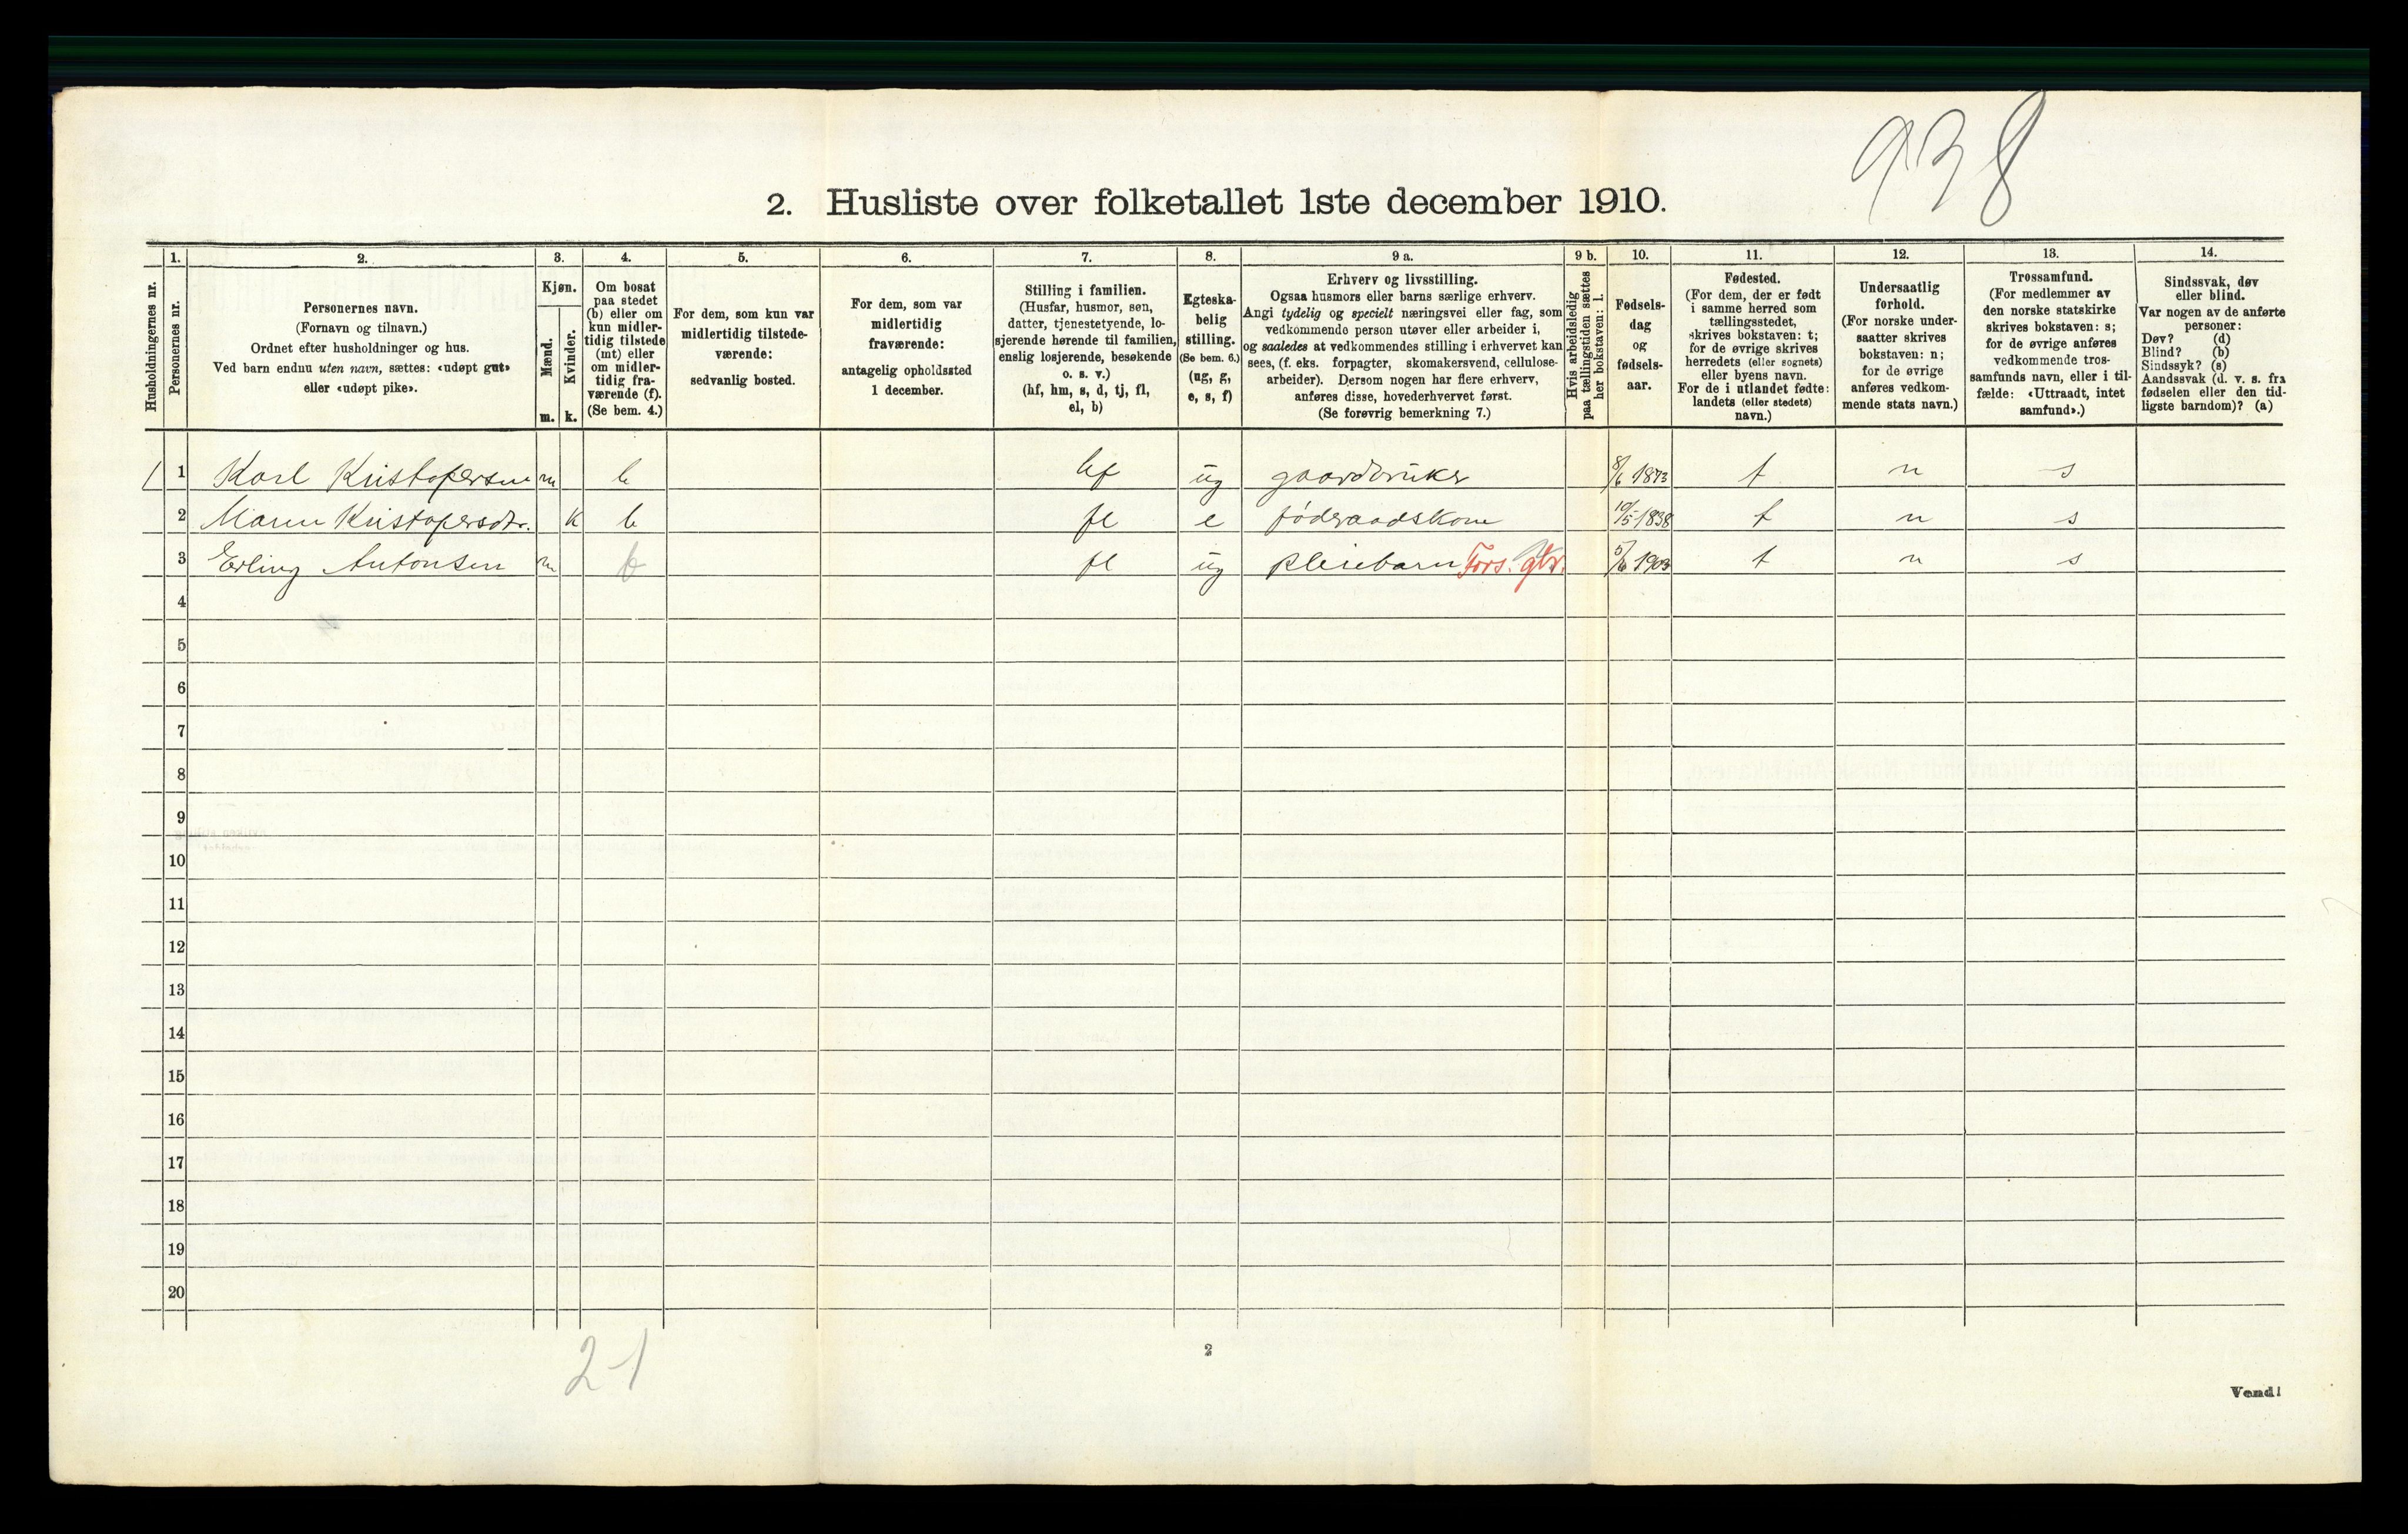 938
2. Husliste over folketallet 1ste december 1910.
Husholdningernes nr.
1.
Personernes nr.
2.
Personernes navn.
(Fornavn og tilnavn.)
Ordnet efter husholdninger og hus.
Ved barn endnu uten navn, sættes: «udøpt gut»
eller «udøpt pike».
3.
Kjøn.
Mænd.
m.
Kvinder.
k.
4.
Om bosat
paa stedet
(b) eller om
kun midler-
tidig tilstede
(mt) eller
om midler-
tidig fra-
værende (f).
(Se bem. 4.)
5.
For dem, som kun var
midlertidig tilstede-
værende:
sedvanlig bosted.
6.
For dem, som var
midlertidig
fraværende:
antagelig opholdssted
1 december.
7.
Stilling i familien.
(Husfar, husmor, søn,
datter, tjenestetyende, lo-
sjerende hørende til familien,
enslig losjerende, besøkende
o. s. v.)
(hf, hm, s, d, tj, fl,
el, b)
8.
Egteska-
belig
stilling.
(Se bem. 6.)
(ug, g,
e, s, f)
9 a.
Erhverv og livsstilling.
Ogsaa husmors eller barns særlige erhverv.
Angi tydelig og specielt næringsvei eller fag, som
vedkommende person utøver eller arbeider i,
og saaledes at vedkommendes stilling i erhvervet kan
sees, (f. eks. forpagter, skomakersvend, cellulose-
arbeider). Dersom nogen har flere erhverv,
anføres disse, hovederhvervet først.
(Se forøvrig bemerkning 7.)
9 b.
Hvis arbeidsledig
paa tællingstiden sættes
her bokstaven: l.
10.
Fødsels-
dag
og
fødsels-
aar.
11.
Fødested.
(For dem, der er født
i samme herred som
tællingsstedet,
skrives bokstaven: t;
for de øvrige skrives
herredets (eller sognets)
eller byens navn.
For de i utlandet fødte:
landets (eller stedets)
navn.)
12.
Undersaatlig
forhold.
(For norske under-
saatter skrives
bokstaven: n;
for de øvrige
anføres vedkom-
mende stats navn.)
13.
Trossamfund.
(For medlemmer av
den norske statskirke
skrives bokstaven: s;
for de øvrige anføres
vedkommende tros-
samfunds navn, eller i til-
fælde: «Uttraadt, intet
samfund».)
14.
Sindssvak, døv
eller blind.
Var nogen av de anførte
personer:
Døv? (d)
Blind? (b)
Sindssyk? (s)
Aandssvak (d. v. s. fra
fødselen eller den tid-
ligste barndom)? (a)
1 1 Karl Kristofersen m b hf ug gaardbruker 8/6 1873 t n s
2 Maren Kristofersdtr. k b fl e føderaadskone 10/5 1838 t n s
3 Erling Antonsen m b fl ug pleiebarn Fors. gbr. 5/6 1903 t n s
4
5
6
7
8
9
10
11
12
13
14
15
16
17
18
19
20
2-1
2
Vend!